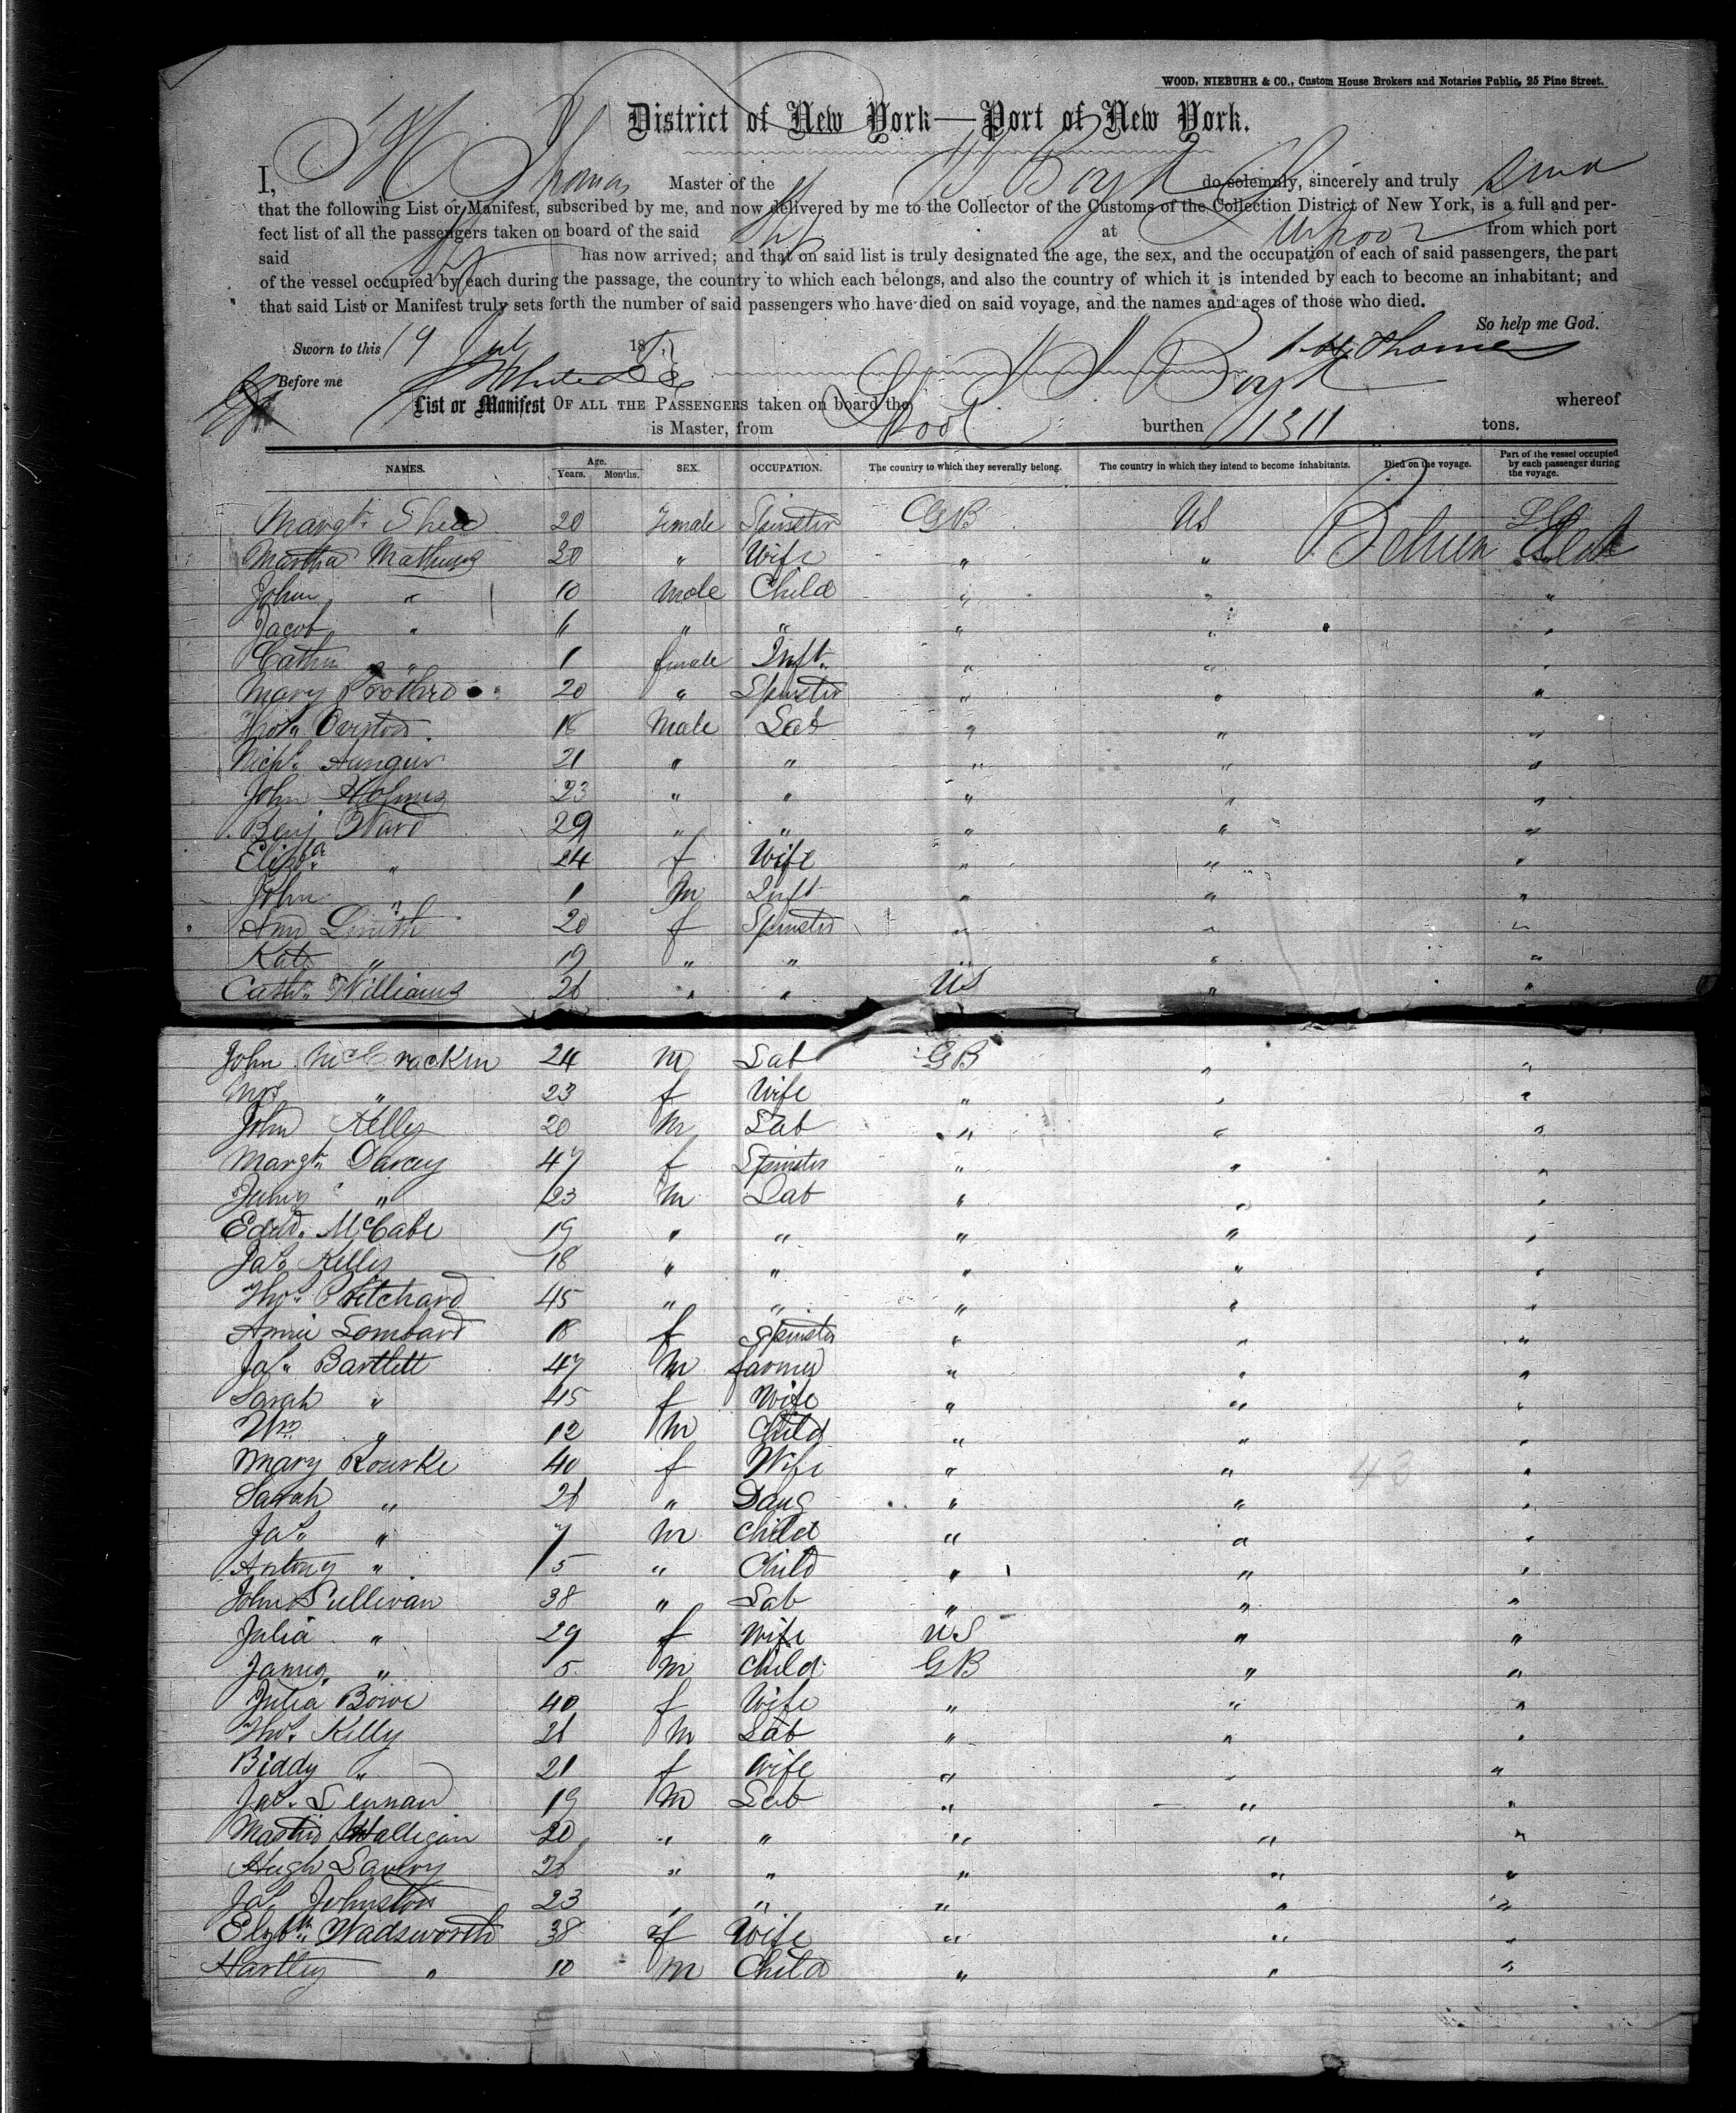 WOOD, NIEBUHR & CO., Custom House Brokers and Notaries Public, 25 Pine Street.
District of New York—Port of New York.
I, Thomas Master of the do solemnly, sincerely and truly
that the following List or Manifest, subscribed by me, and now delivered by me to the Collector of the Customs of the Collection District of New York, is a full and per-
fect list of all the passengers taken on board of the said at from which port
said has now arrived; and that on said list is truly designated the age, the sex, and the occupation of each of said passengers, the part
of the vessel occupied by each during the passage, the country to which each belongs, and also the country of which it is intended by each to become an inhabitant; and
that said List or Manifest truly sets forth the number of said passengers who have died on said voyage, and the names and ages of those who died.
So help me God.
Sworn to this 19 18 Thomas
Before me
List or Manifest OF ALL THE PASSENGERS taken on board the whereof
is Master, from Lpool burthen 1311 tons.
NAMES. Age. Years. Months. SEX. OCCUPATION. The country to which they severally belong. The country in which they intend to become inhabitants. Died on the voyage. Part of the vessel occupied by each passenger during the voyage.
Margt. Shea 20 Female Spinster GB US
Martha Mathews 30 " Wife " " "
John " 10 Male Child " " "
Jacob " " " " " "
" 1 female Inft. " " "
Mary 20 " Spinster " " "
18 Male Lab " " "
Nichs. 21 " " " " "
John Holmes 23 " " " " "
Benj Ward 29 " " " " "
Elizba " 24 f Wife " " "
John " 1 M Inft " " "
Ann Smith 20 f Spinster " " "
Kate " 19 " " " " "
Cathn. Williams 26 " " US " "
John McCrackin 24 M Lab GB " "
Mrs " 23 f Wife " " "
John Kelly 20 M Lab " " "
Margt. Darcy 47 f Spinster " " "
James " 23 M Lab " " "
Edwd. McCabe 19 " " " " "
Jas. Kelly 18 " " " " "
Thos. Pritchard 45 " " " " "
Annie Lombard 18 f Spinster " " "
Jas. Bartlett 47 M farmer " " "
Sarah " 45 f Wife " " "
Wm. " 12 M Child " " "
Mary Rourke 40 f Wife " " "
Sarah " 26 " Daug " " "
Jas. " 7 M Child " " "
Antony " 5 " Child " " "
John Sullivan 38 " Lab " " "
Julia " 29 f Wife US " "
James " 5 M Child GB " "
Julia Bowe 40 f Wife " " "
Thos. Kelly 26 M Lab " " "
Biddy " 21 f Wife " " "
Jas. Lennan 19 M Lab " " "
Halligan 20 " " " " "
Hugh Lavery 26 " " " " "
Jas. Johnston 23 " " " " "
Elzbth. Wadsworth 38 f Wife " " "
Hartley " 10 M Child " " "